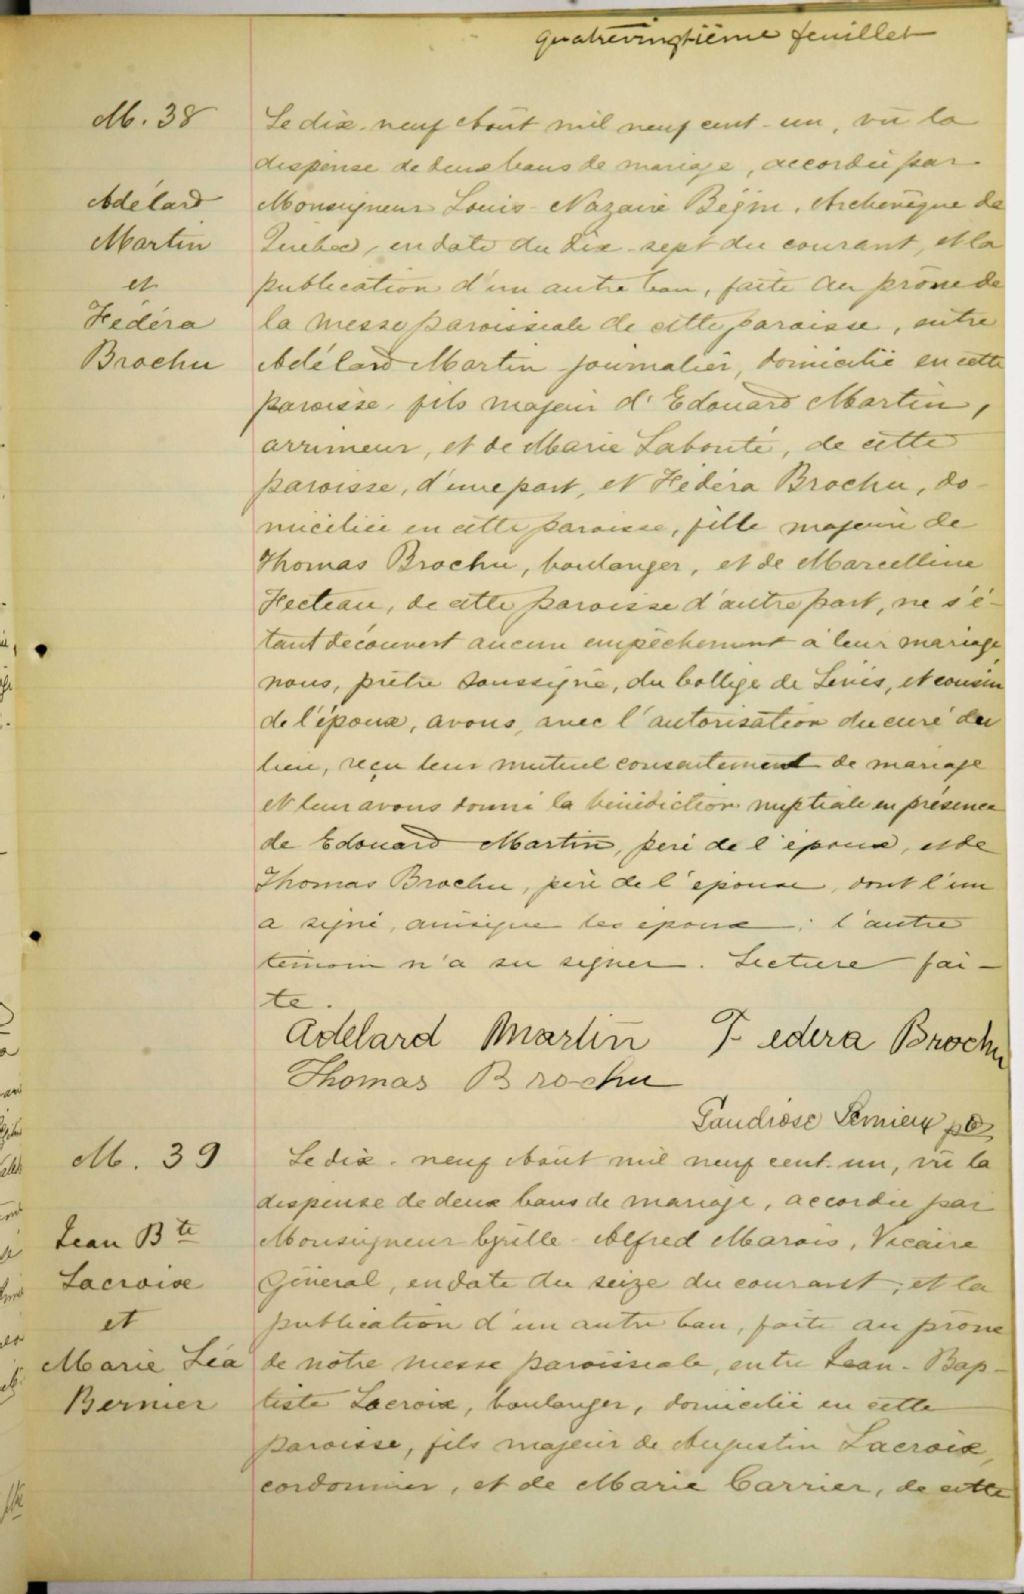 quatrevingtième feuillet
M. 38
Adélard
Martin
et
Fédéra
Brochu
Le dix-neuf Août mil neuf cent-un, vû la
dispense de deux bans de mariage, accordée par
Monseigneur Louis-Nazaire Bégin, Archevêque de
Québec, en date du dix-sept du courant, et la
publication d'un autre ban, faite au prône de
la messe paroissiale de cette paroisse, entre
Adélard Martin journalier, domicilié en cette
paroisse, fils majeur d'Edouard Martin,
arrimeur, et de Marie Labonté, de cette
paroisse, d'une part, et Fédéra Brochu, do-
miciliée en cette paroisse, fille majeure de
Thomas Brochu, boulanger, et de Marcelline
Fecteau, de cette paroisse d'autre part, ne s'é-
tant découvert aucun empêchement à leur mariage,
nous, prêtre soussigné, du Collège de Lévis, et cousin
de l'époux, avons, avec l'autorisation du curé du
lieu, reçu leur mutuel consentement de mariage
et leur avons donné la bénédiction nuptiale en présence
de Edouard Martin, père de l'époux, et de
Thomas Brochu, père de l'épouse, dont l'un
a signé, ainsique les époux; l'autre
témoin n'a su signer. Lecture fai-
te.
Adelard Martin Federa Brochu
Thomas Brochu
Gaudiose Lemieux ptre
M. 39
Jean Bte
Lacroix
et
Marie Léa
Bernier
Le dix-neuf Août mil neuf cent-un, vû la
dispense de deux bans de mariage, accordée par
Monseigneur Cyrille-Alfred Marois, Vicaire
Général, en date du seize du courant, et la
publication d'un autre ban, faite au prône
de notre messe paroissiale, entre Jean-Bap-
tiste Lacroix, boulanger, domicilié en cette
paroisse, fils majeur de Augustin Lacroix,
cordonnier, et de Marie Carrier, de cette